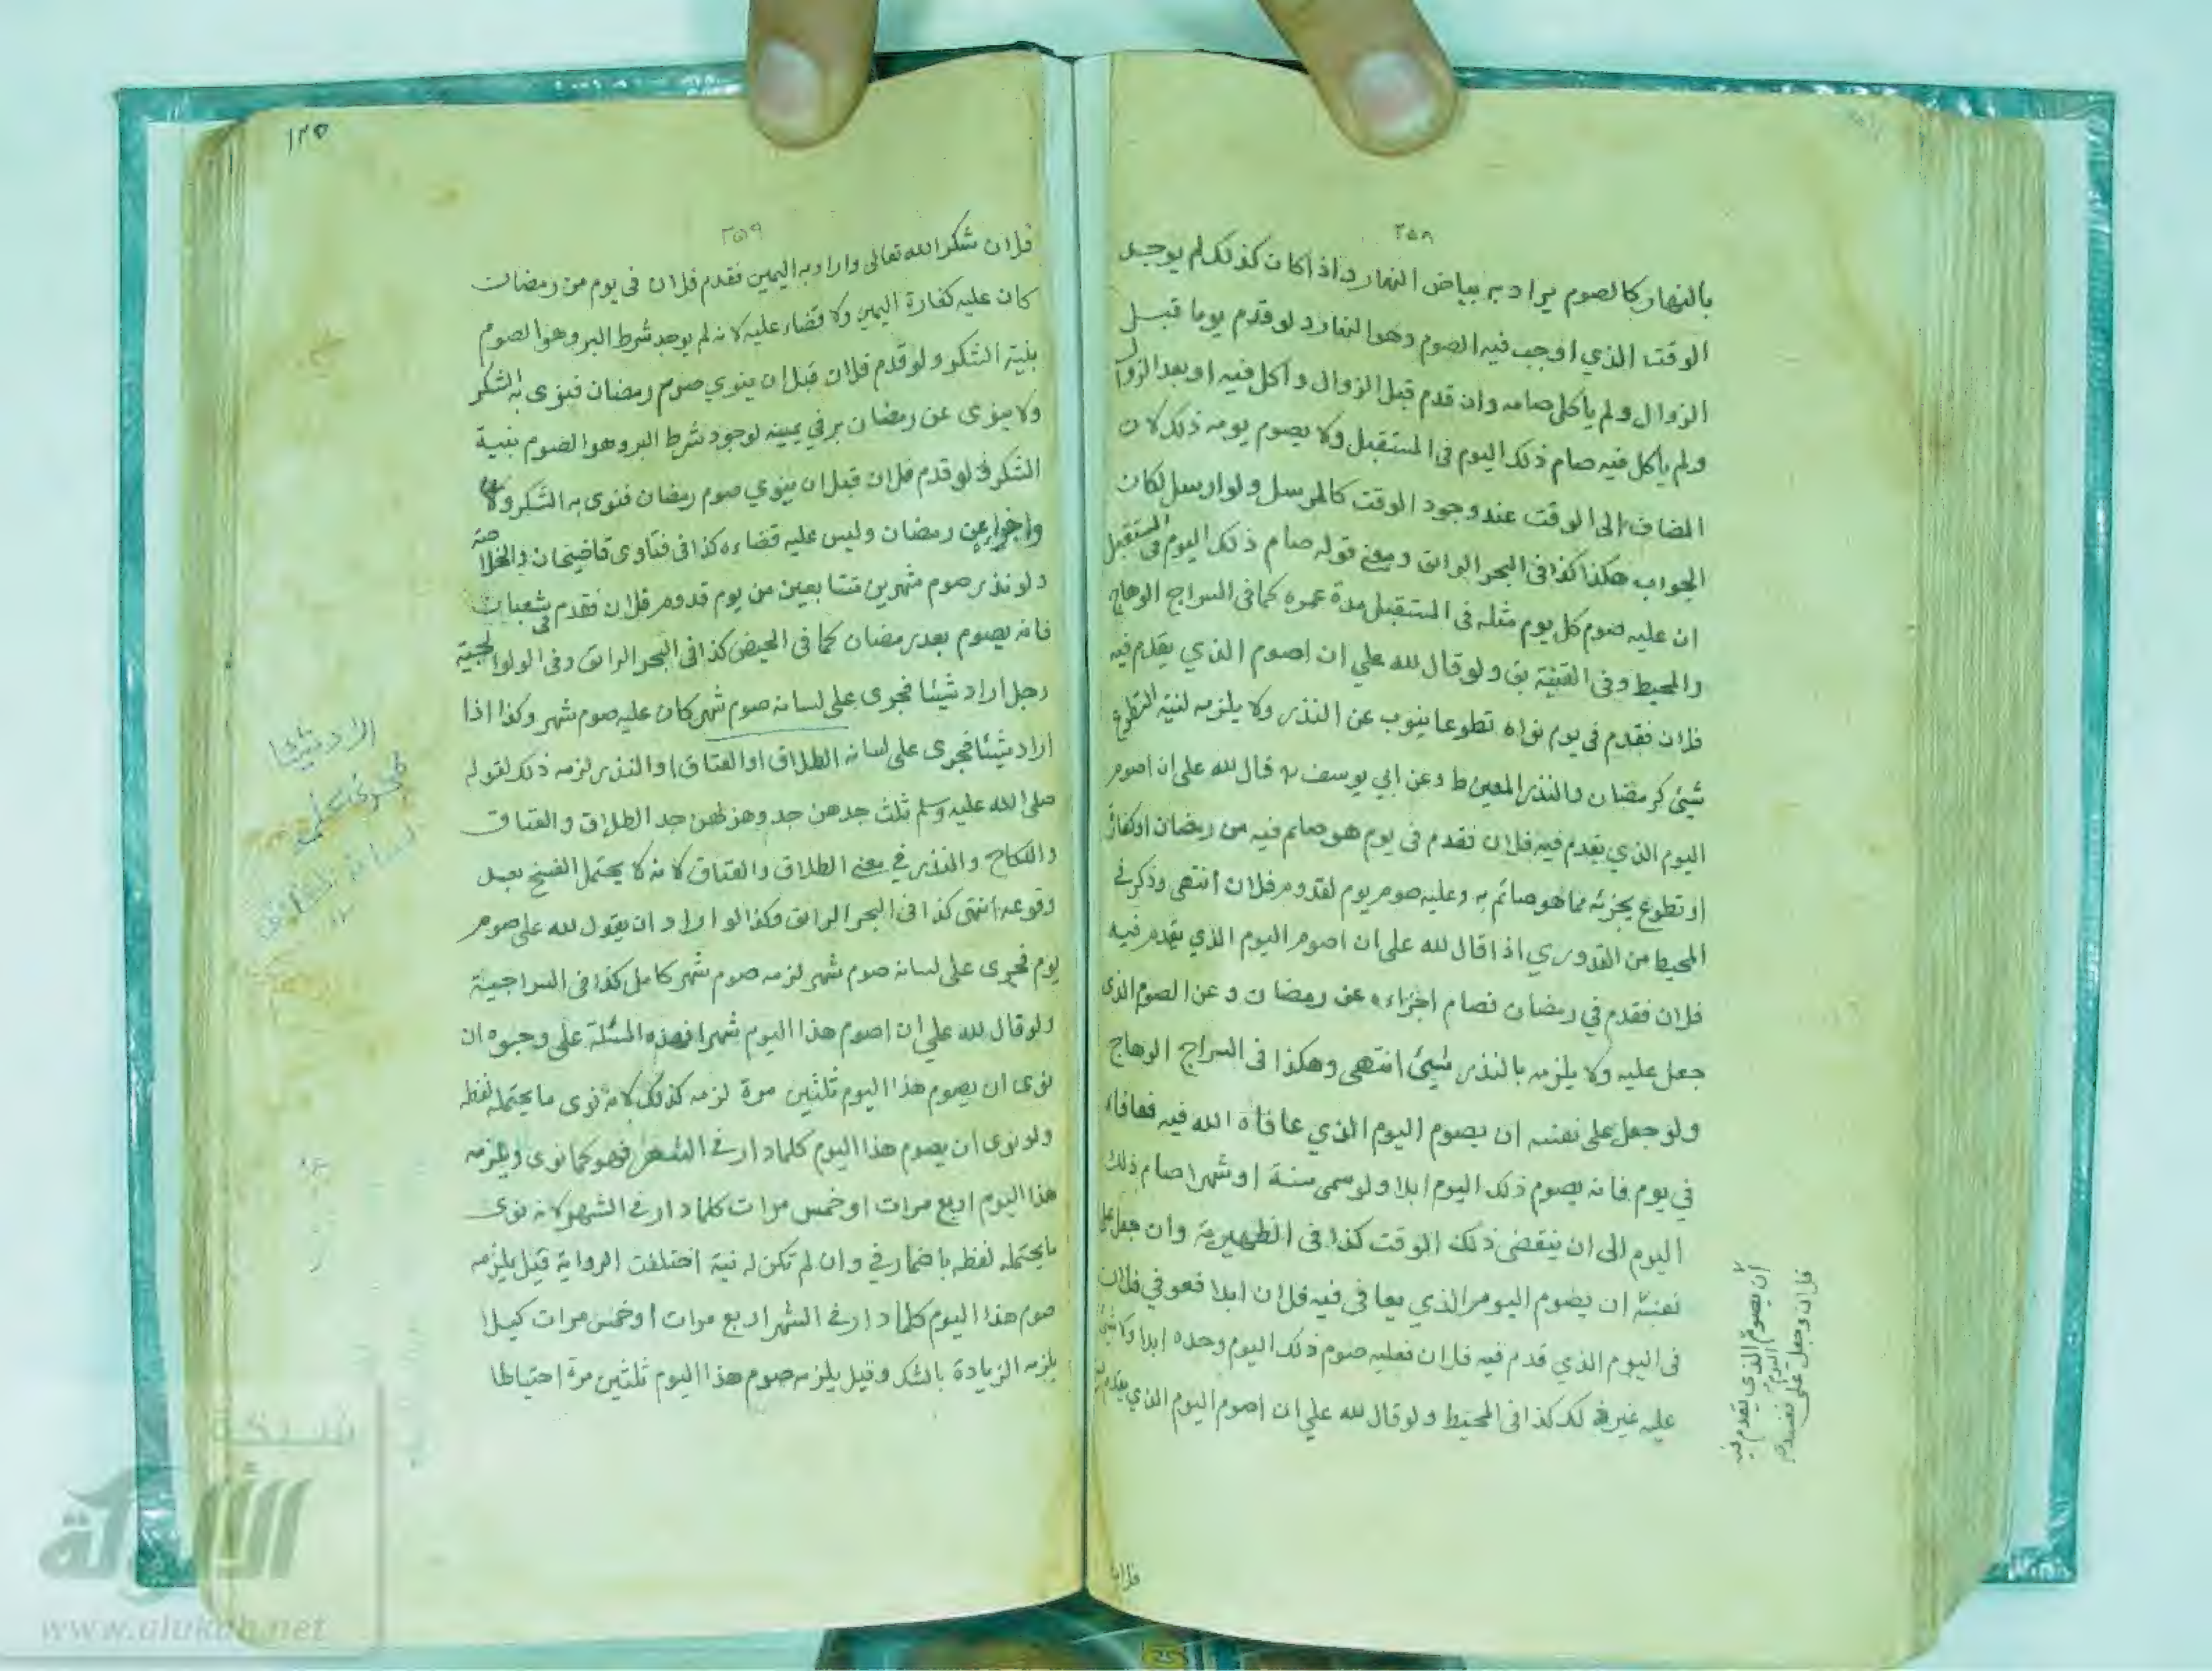 ٢٥٨
بالنهار كالصوم يراد به بياض النهار واذا كان كذلك لم يوجد
الوقت الذي اوجب فيه الصوم وهو النهار ولو قدم يوما قبل
الزوال ولم ياكل صامه وان قدم قبل الزوال واكل فيه او بعد الزوال
ولم ياكل فيه صام ذلك اليوم في المستقبل ولا يصوم يومه ذلك لان
المضاف الى الوقت عند وجود الوقت كالمرسل ولو ارسل لكان
الجواب هكذا كذا في البحر الرائق ومعنى قوله صام ذلك اليوم في المستقبل
ان عليه صوم كل يوم مثله في المستقبل مدة عمره كما في السراج الوهاج
والمحيط وفي القنية بق ولو قال لله علي ان اصوم الذي يقدم فيه
فلان فقدم في يوم نواه تطوعا ينوب عن النذر ولا يلزمه لنية التطوع
شيئ كرمضان والنذر المعين ط وعن ابي يوسف قال لله على ان اصوم
اليوم الذي يقدم فيه فلان فقدم في يوم هو صائم فيه من رمضان او كفارة
او تطوع يجزئه مما هو صائم به وعليه صوم يوم لقدوم فلان انتهى وذكر في
المحيط من القدوري اذا قال لله على ان اصوم اليوم الذي يقدم فيه
فلان فقدم في رمضان فصام اجزاءه عن رمضان وعن الصوم الذى
جعل عليه ولا يلزمه بالنذر شيئ انتهى وهكذا في السراج الوهاج
ولو جعل على نفسه ان يصوم اليوم الذي عافاه الله فيه فعافاه
في يوم فانه يصوم ذلك اليوم ابدا ولو سمى سنة او شهرا صام ذلك
اليوم الى ان ينقضى ذلك الوقت كذا في الظهيرية وان جعل على
نفسه ان يصوم اليوم الذي يعافى فيه فلان ابدا فعوفي فلان
في اليوم الذي قدم فيه فلان فعليه صوم ذلك اليوم وحده ابدا ولا شيئ
عليه غير ذلك كذا في المحيط ولو قال لله علي ان اصوم اليوم الذي يقدم فيه
فلان وجعل على نفسه
ان يصوم اليوم الذي يقدم فيه
فلان
١٢٥
٢٥٩
فلان شكرا لله تعالى واراد به اليمين فقدم فلان في يوم من رمضان
كان عليه كفارة اليمين ولا قضاء عليه لانه لم يوجد شرط البر وهو الصوم
بنية الشكر ولو قدم فلان قبل ان ينوي صوم رمضان فنوى به الشكر
ولا ينوى عن رمضان بر في يمينه لوجود شرط البر وهو الصوم بنية
الشكر ولو قدم فلان قبل ان ينوي صوم رمضان فنوى به الشكر
واجزاه عن رمضان وليس عليه قضاءه كذا في فتاوى قاضيخان والخلاصة
ولو نذر صوم شهرين متتابعين من يوم قدوم فلان فقدم في شعبان
فانه يصوم بعد رمضان كما في الحيض كذا في البحر الرائق وفي الولوالجية
رجل اراد شيئا فجرى على لسانه صوم شهر كان عليه صوم شهر وكذا اذا
اراد شيئا فجرى على لسانه الطلاق او العتاق او النذر لزمه ذلك لقوله
صلى الله عليه وسلم ثلث جدهن جد وهزلهن جد الطلاق والعتاق
والنكاح والنذر في معنى الطلاق والعتاق لانه لا يحتمل الفسخ بعد
وقوعه انتهى كذا في البحر الرائق وكذا لو اراد ان يقول لله على صوم
يوم فجرى على لسانه صوم شهر لزمه صوم شهر كامل كذا في السراجية
ولو قال لله علي ان اصوم هذا اليوم شهرا فهذه المسئلة على وجوه ان
نوى ان يصوم هذا اليوم ثلثين مرة لزمه كذلك لانه نوى ما يحتمله لفظه
ولو نوى ان يصوم هذا اليوم كلما دار في الشهر فهو كما نوى ويلزمه
هذا اليوم اربع مرات او خمس مرات كلما دار في الشهر لانه نوى
ما يحتمله لفظه باضمار في وان لم تكن له نية اختلفت الرواية قيل يلزمه
صوم هذا اليوم كلما دار في الشهر اربع مرات او خمس مرات كيلا
يلزمه الزيادة بالشك وقيل يلزمه صوم هذا اليوم ثلثين مرة احتياطا
اراد شيئا
فجرى على
لسانه الطلاق
شبكة
الألوكة
www.alukah.net